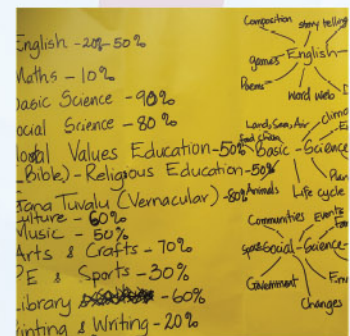 English - 20%-50%
Maths - 10%
Basic Science - 90%
Social Science - 80%
Moral Values Education - 50%
(Bible) - Religious Education - 50%
Gana Tuvalu (Vernacular) - 80%
Culture - 60%
Music - 50%
Arts & Crafts - 70%
PE & Sports - 30%
Library - 60%
Printing & Writing - 20%
Composition
story telling
games
English
Poems
word web
Land, Sea, Air
food chain
Basic - Science
Animals
Life cycle
Communities
Events
Sports
Social - Science
Government
Changes